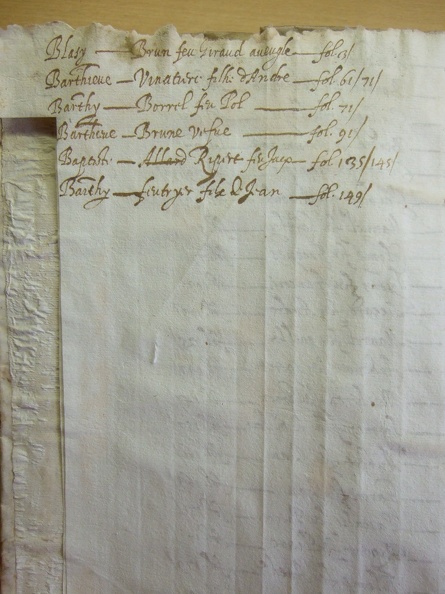 Blasy — Brun feu Giraud aveugle — fol. 3/
Barthieue — Vinatieri filh d'Andre — fol. 61/71/
Barthy — Borrel feu Pol — fol. 71/
Bartheue — Brune vefue — fol. 91/
Baptiste — Allard Ripert feu Jaq — fol. 135/145/
Barthy — filz d Jean — fol. 149/